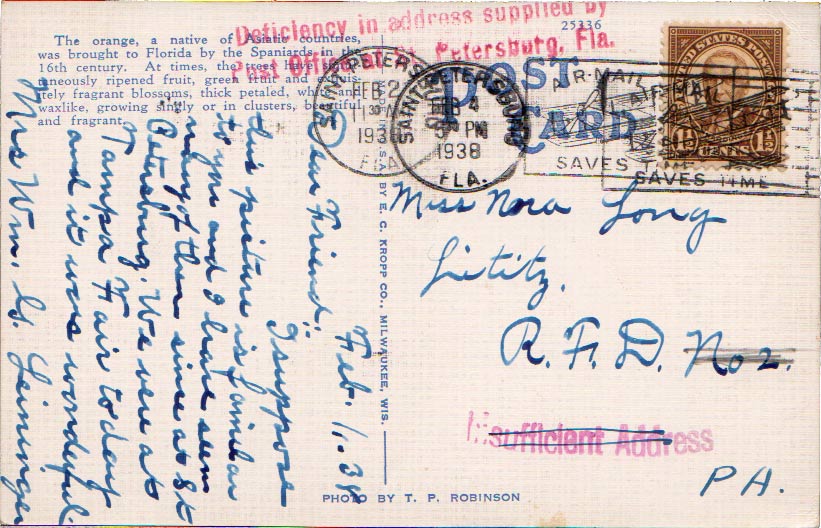 Deficiency in address supplied by
Post Office at St. Petersburg, Fla.
25336
The orange, a native of Asiatic countries,
was brought to Florida by the Spaniards in the
16th century. At times, the trees have
taneously ripened fruit, green fruit and exquis-
itely fragrant blossoms, thick petaled, white and
waxlike, growing singly or in clusters, beautiful
and fragrant.
POST
CARD
SAINT PETERSBURG
FEB 2
11
1938
FLA.
SAINT PETERSBURG
FEB 4
PM
1938
FLA.
AIR MAIL
SAVES TIME
AIR MAIL
SAVES TIME
UNITED STATES POSTAGE
1½ CENTS 1½
Miss Nora Long
Lititz.
R. F. D. No 2.
Insufficient Address
PA.
Feb. 1, 38
Dear Friend:
I suppose
this picture is familiar
to you and I have seen
many of them since at St
Petersburg. We were at
Tampa Fair to day
and it was wonderful.
Mrs Wm. G. Leininger
U.S.A. BY E. C. KROPP CO., MILWAUKEE, WIS.
PHOTO BY T. P. ROBINSON